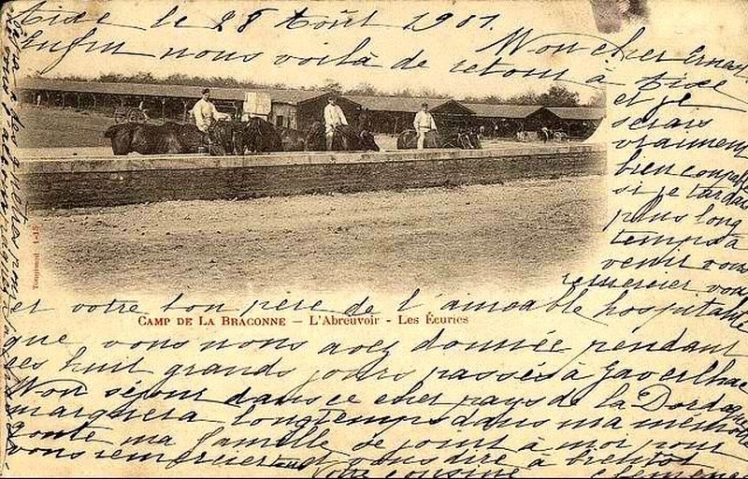 le 28 Août 1901.
Mon cher Ernest
Enfin nous voilà de retour à
et je
serais
vraiment
bien coupable
si je tardais
plus long
temps à
venir vous
remercier vous
et votre bon père de l'aimable hospitalité
CAMP DE LA BRACONNE — L'Abreuvoir - Les Écuries
que vous nous avez donnée pendant
ces huit grands jours passés à
Mon séjour dans ce cher pays de la Dordogne
marquera longtemps dans ma mémoire
toute ma famille se joint à moi pour
vous remercier et vous dire à bientôt
Votre cousine